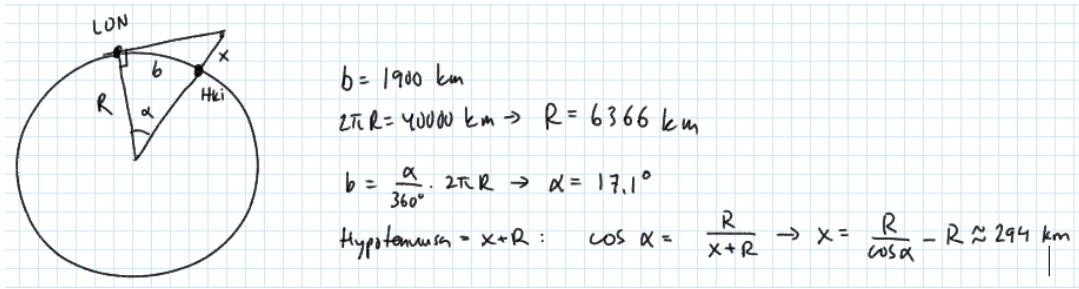 LON
x
b
Hki
R
α
b = 1900 km
2πR = 40000 km → R = 6366 km
b = α/360° · 2πR → α = 17,1°
Hypotenuusa = x+R : cos α = R/(x+R) → x = R/cosα − R ≈ 294 km